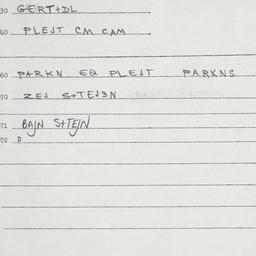 30 GERT+DL
60 PLEJT CM CAM
60 PARKN EQ PLEJT PARKNS
70 ZEJ S+TEJ3N
71 BAJN S+TEJN
72 D